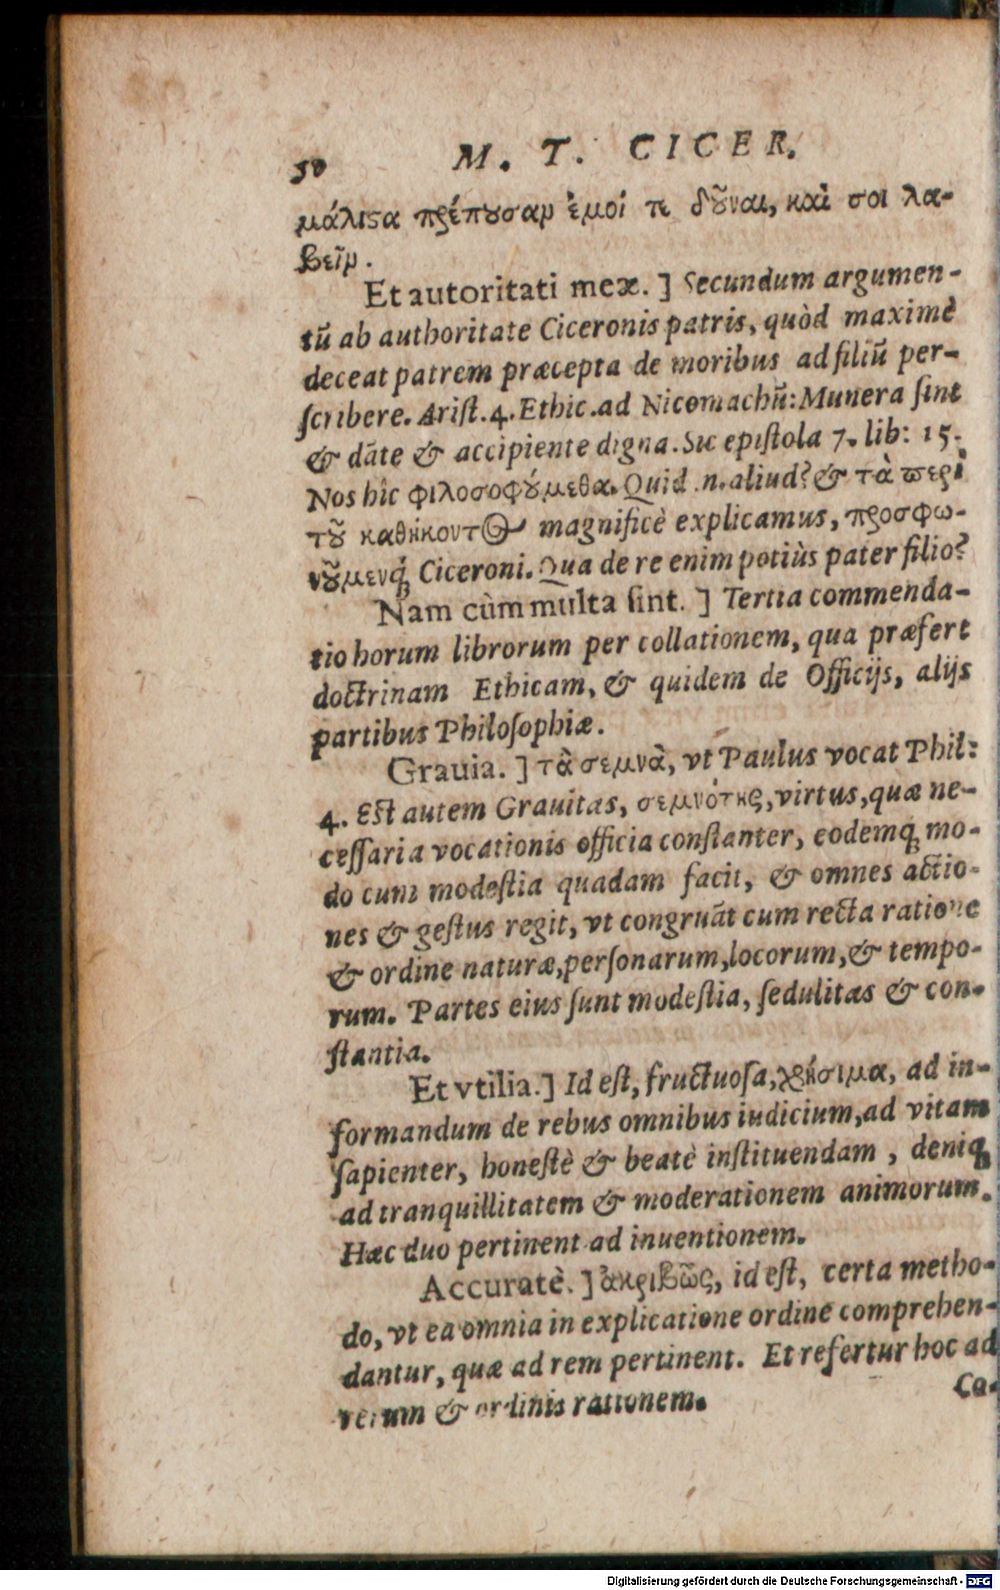 50 M. T. CICER.
μάλιϛα πρέπουσαν ἐμοί τι δοῦναι, καὶ σοι λα-
βεῖν.
Et autoritati meæ. ] Secundum argumen-
tū ab authoritate Ciceronis patris, quòd maximè
deceat patrem præcepta de moribus ad filiū per-
ſcribere. Ariſt. 4. Ethic. ad Nicomachū: Munera ſint
& dāte & accipiente digna. Sic epiſtola 7. lib: 15.
Nos hîc φιλοσοφούμεθα. Quid .n. aliud? & τὰ περὶ
τοῦ καθήκοντος magnificè explicamus, προσφω-
νοῦμενq́ꝫ Ciceroni. Qua de re enim potiùs pater filio?
Nam cùm multa ſint. ] Tertia commenda-
tio horum librorum per collationem, qua præfert
doctrinam Ethicam, & quidem de Officijs, alijs
partibus Philoſophiæ.
Grauia. ] τὰ σεμνὰ, vt Paulus vocat Phil:
4. Eſt autem Grauitas, σεμνότης, virtus, quæ ne-
ceſſaria vocationis officia conſtanter, eodemqꝫ mo-
do cum modeſtia quadam facit, & omnes actio-
nes & geſtus regit, vt congruāt cum recta ratione
& ordine naturæ, perſonarum, locorum, & tempo-
rum. Partes eius ſunt modeſtia, ſedulitas & con-
ſtantia.
Et vtilia. ] Id eſt, fructuoſa, χρήσιμα, ad in-
formandum de rebus omnibus iudicium, ad vitam
ſapienter, honeſtè & beatè inſtituendam , deniqꝫ
ad tranquillitatem & moderationem animorum.
Hæc duo pertinent ad inuentionem.
Accuratè. ] ἀκριβῶς, id eſt, certa metho-
do, vt ea omnia in explicatione ordine comprehen-
dantur, quæ ad rem pertinent. Et refertur hoc ad
rerum & ordinis rationem.
Co-
Digitalisierung gefördert durch die Deutsche Forschungsgemeinschaft - DFG